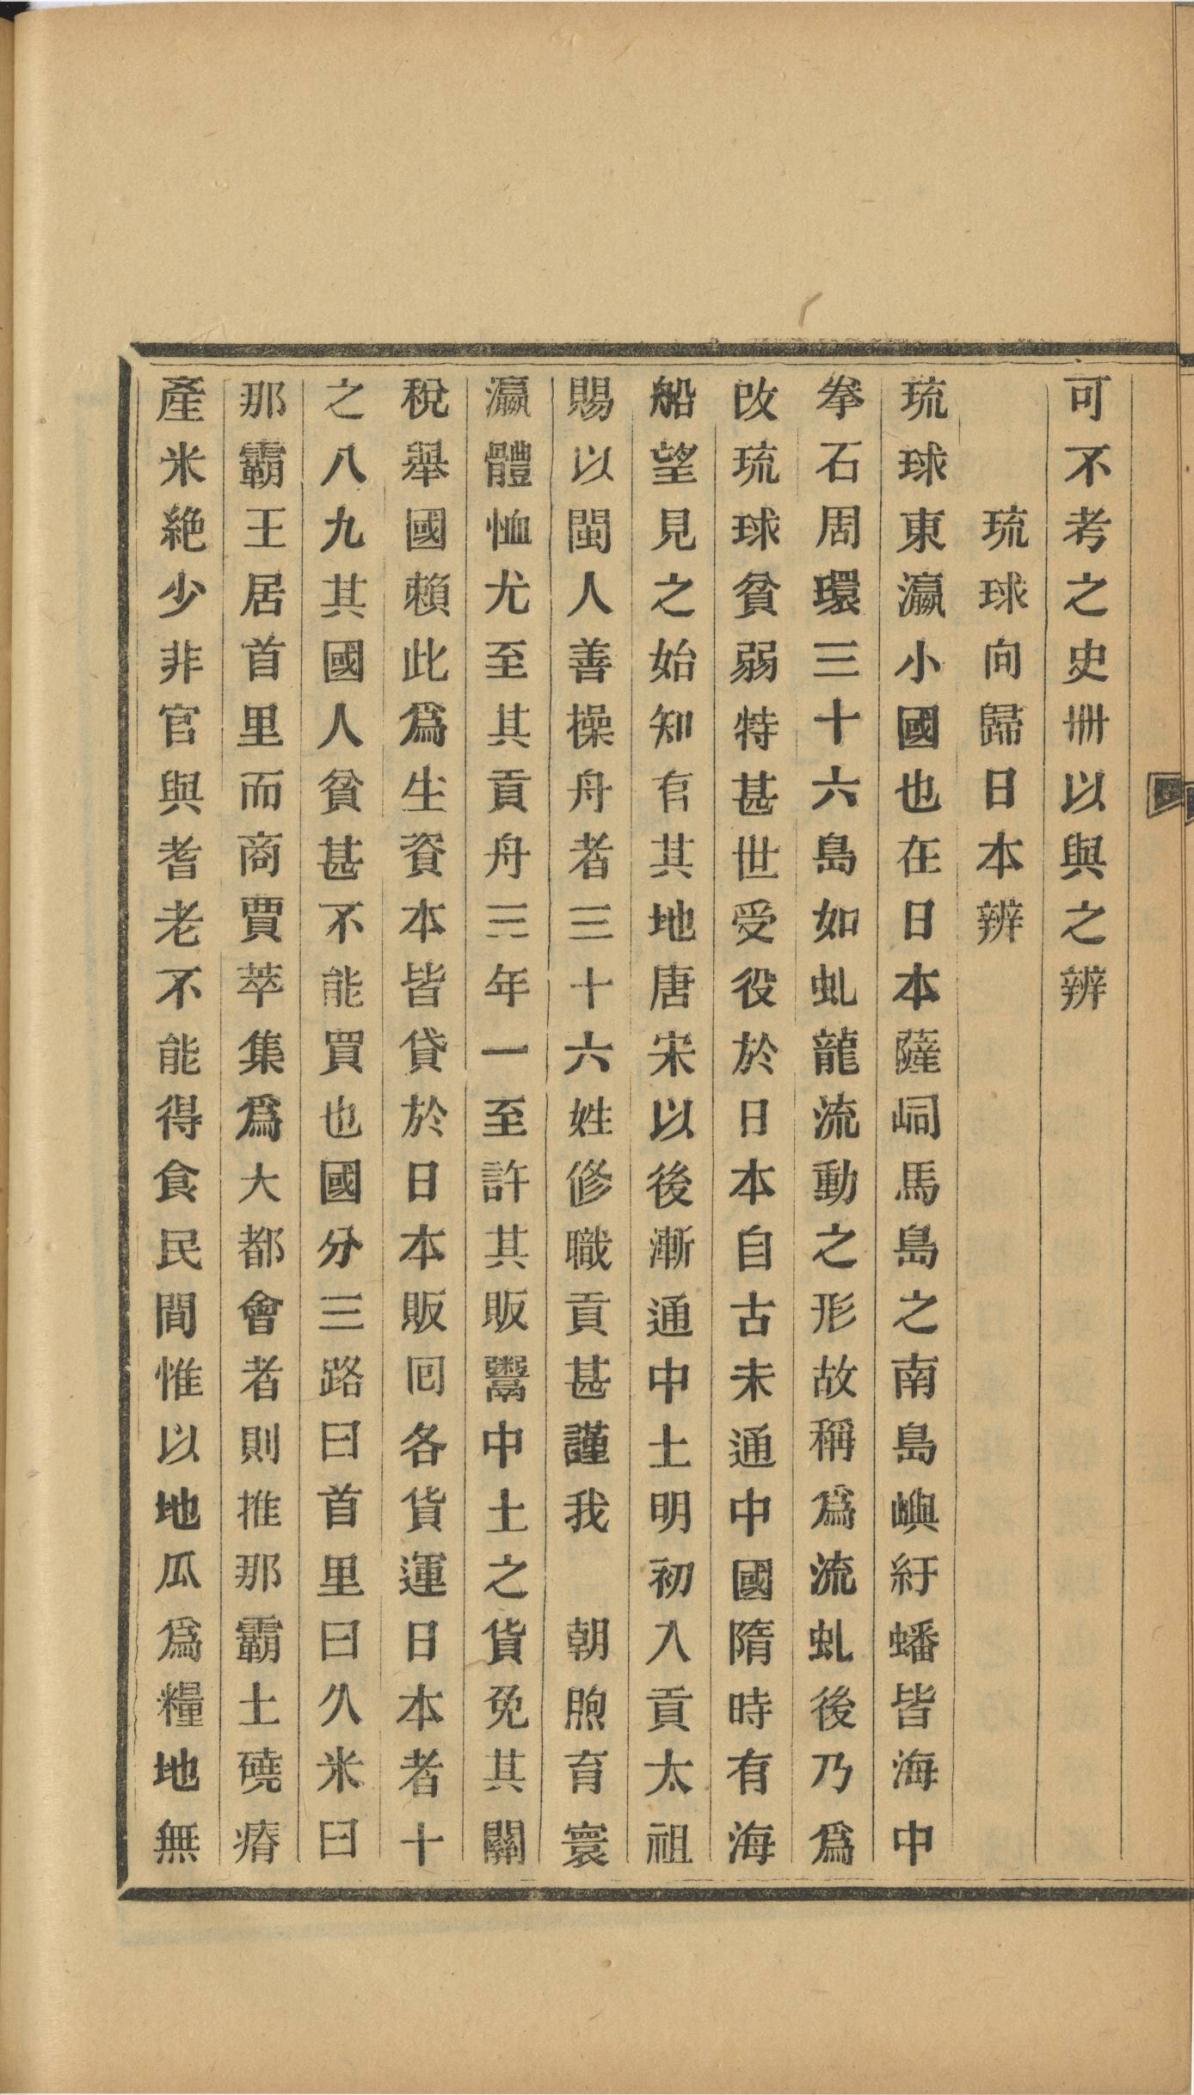 可不考之史冊以與之辨
琉球向歸日本辨
琉球東瀛小國也在日本薩峒馬島之南島嶼紆蟠皆海中
拳石周環三十六島如虬龍流動之形故稱爲流虬後乃爲
改琉球貧弱特甚世受役於日本自古未通中國隋時有海
船望見之始知有其地唐宋以後漸通中土明初入貢太祖
賜以閩人善操舟者三十六姓修職貢甚謹我　朝煦育寰
瀛體恤尤至其貢舟三年一至許其販鬻中土之貨免其關
稅舉國賴此爲生資本皆貸於日本販回各貨運日本者十
之八九其國人貧甚不能買也國分三路曰首里曰久米曰
那霸王居首里而商賈萃集爲大都會者則推那霸土磽瘠
產米絕少非官與耆老不能得食民間惟以地瓜爲糧地無